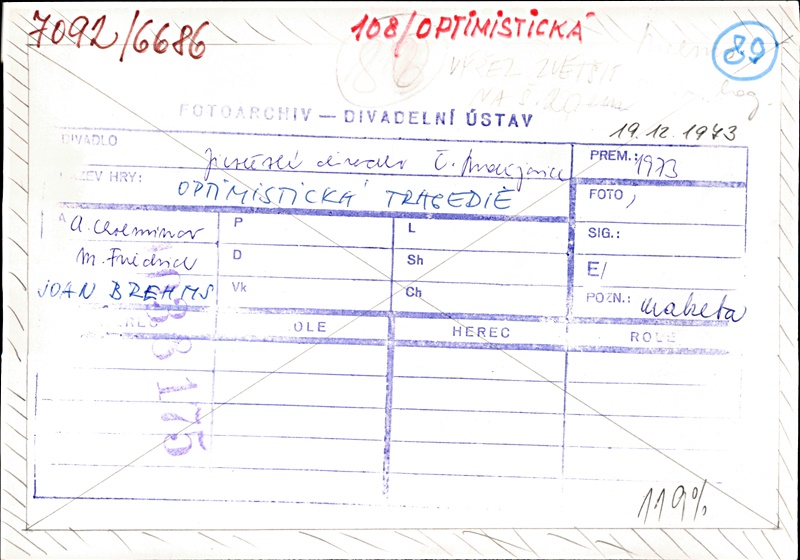 7092/6686
108/OPTIMISTICKÁ
89
VÝŘEZ ZVĚTŠIT
NA Š. 20
FOTOARCHIV — DIVADELNÍ ÚSTAV
19.12.1973
DIVADLO Jihočeské divadlo Č. Budějovice
PREM.: 1973
NÁZEV HRY: OPTIMISTICKÁ TRAGEDIE
FOTO
A P L SIG.:
M. Fridrich D Sh E/
JOAN BREHMS Vk Ch POZN.: maketa
HEREC ROLE
83175
119%